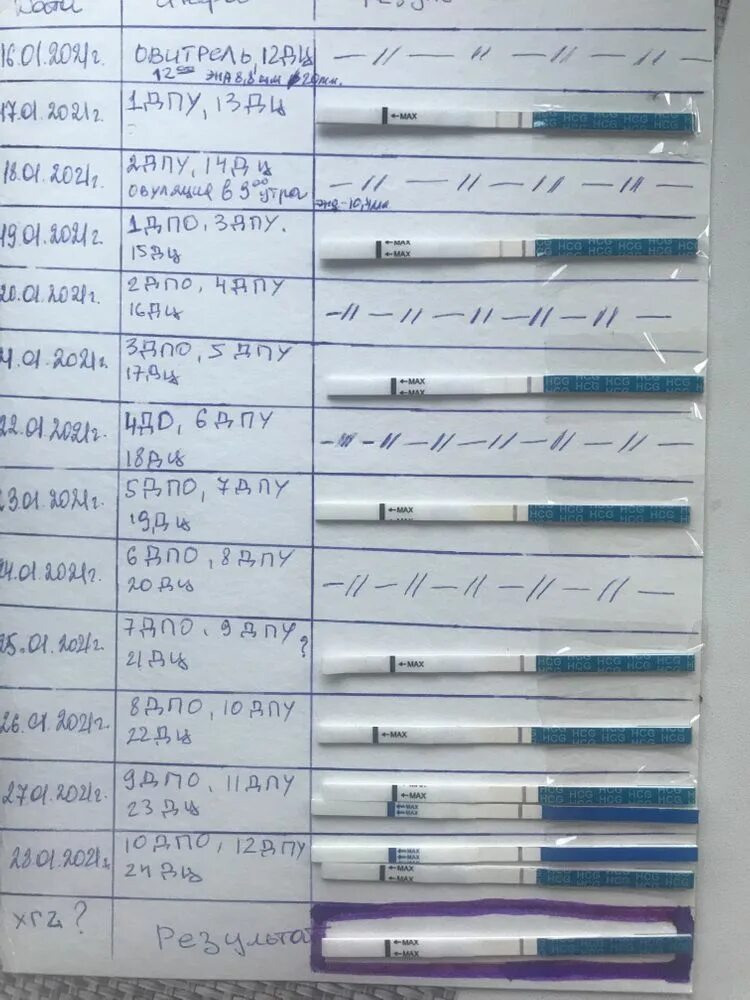 Дата
16.01.2021г.
ОВИТРЕЛЬ, 12ДЦ
12⁰⁰ ЭНД 8,8мм
1ДПУ, 13ДЦ
17.01.2021г.
←MAX
HCG HCG HCG HCG
18.01.2021г.
2ДПУ, 14ДЦ
овуляция в 9⁰⁰ утра
энд-10,4мм
19.01.2021г.
1ДПО, 3ДПУ.
15ДЦ
←MAX
←MAX
HCG HCG HCG
20.01.2021г.
2ДПО, 4ДПУ
16ДЦ
1.01.2021г.
3ДПО, 5ДПУ
17ДЦ
←MAX
←MAX
HCG HCG HCG
22.01.2021г.
4ДО, 6ДПУ
18ДЦ
23.01.2021г.
5ДПО, 7ДПУ
19ДЦ
←MAX
HCG HCG HCG
4.01.2021г.
6ДПО, 8ДПУ
20ДЦ
25.01.2021г.
7ДПО, 9ДПУ?
21ДЦ
←MAX
HCG HCG HCG
26.01.2021г.
8ДПО, 10ДПУ
22ДЦ
←MAX
HCG HCG HCG
27.01.2021г.
9ДПО, 11ДПУ
23ДЦ
←MAX
←MAX
←MAX
28.01.2021г.
10ДПО, 12ДПУ
24ДЦ
←MAX
←MAX
←MAX
HCG HCG HCG
хгч?
Результат
←MAX
←MAX